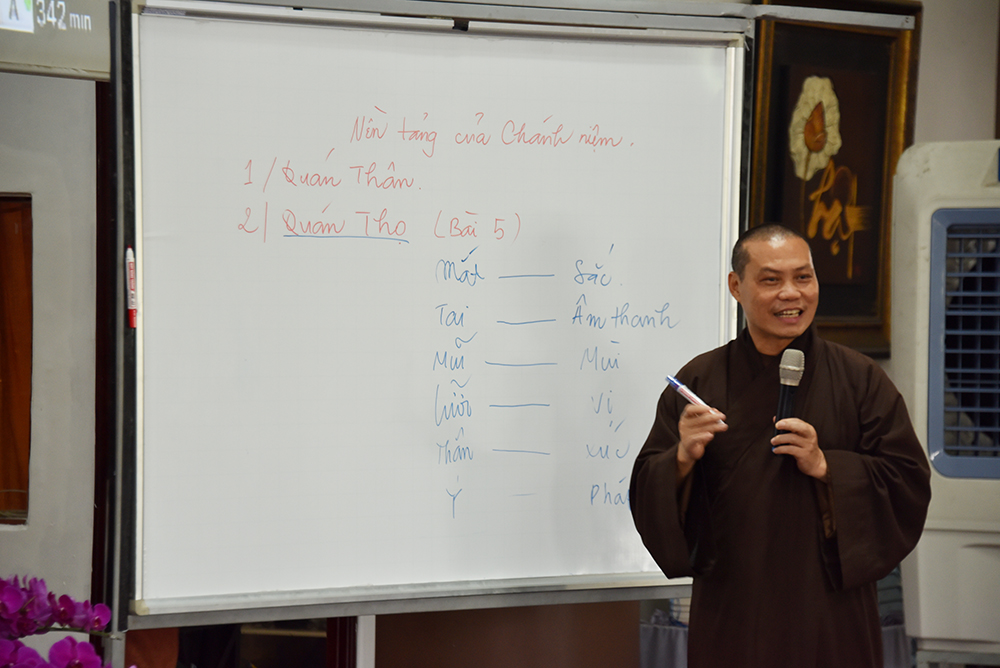 A 342 min
Nền tảng của Chánh niệm.
1/ Quán Thân.
2/ Quán Thọ (Bài 5)
Mắt — Sắc.
Tai — Âm thanh
Mũi — Mùi
Lưỡi — Vị
Thân — xúc
Ý — Phá